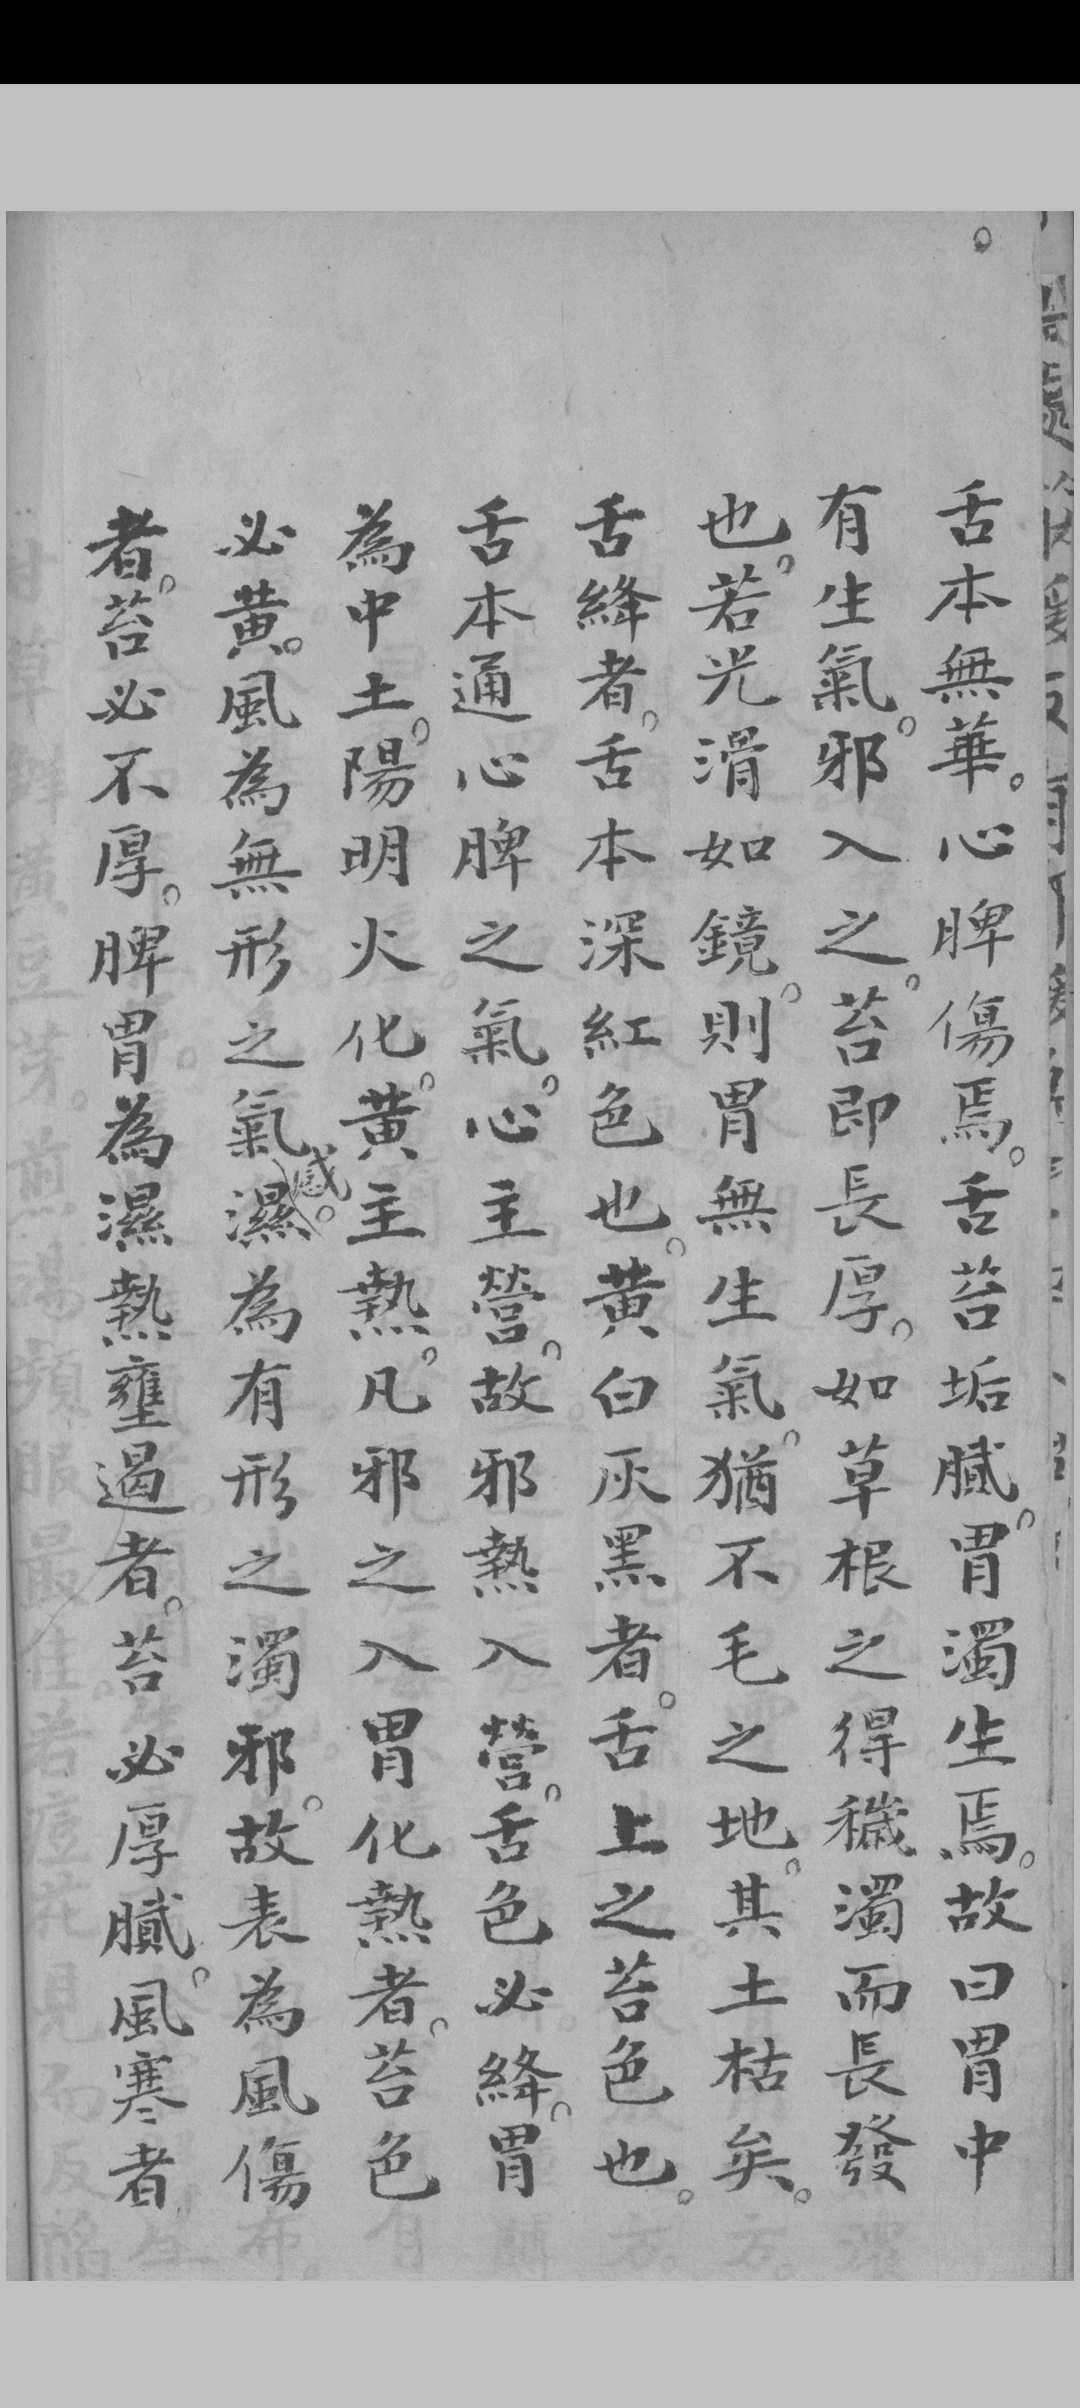 舌本無華。心脾傷焉。舌苔垢膩。胃濁生焉。故曰胃中
有生氣。邪入之。苔即長厚。如草根之得穢濁而長發
也。若光滑如鏡。則胃無生氣。猶不毛之地。其土枯矣。
舌絳者。舌本深紅色也。黃白灰黑者。舌上之苔色也。
舌本通心脾之氣。心主營。故邪熱入營。舌色必絳。胃
為中土。陽明火化。黃主熱。凡邪之入胃化熱者。苔色
必黃。風為無形之氣感。濕為有形之濁邪。故表為風傷
者。苔必不厚。脾胃為濕熱壅遏者。苔必厚膩。風寒者